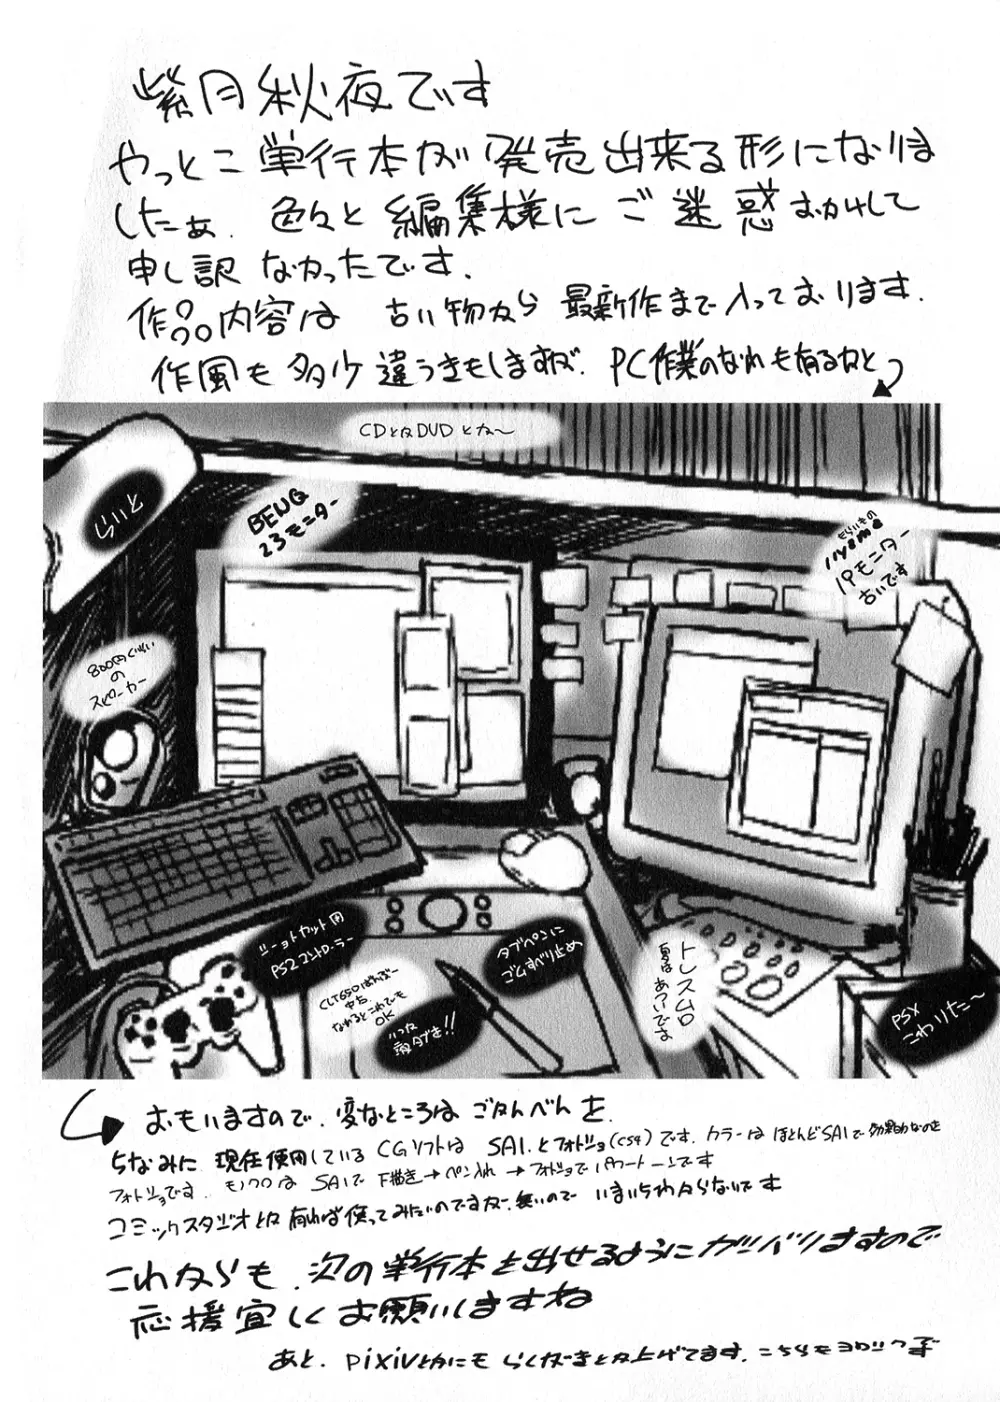 紫月秋夜です
やっとこ単行本が発売出来る形になりま
したぁ. 色々と編集様にご迷惑おかけして
申し訳なかったです.
作品内容は 古い物から最新作まで入っております.
作風も多少違うきもしますが. PC作業のなれも有るかと
CDとかDVDとか〜
らいと
BENQ
23モニター
もらいもの
iiyama
19モニター
古いです
800円くらい
の
スピーカー
ショートカット用
PS2コントローラー
タブペンに
ゴムすべり止め
中古.
なれるとこれでも
OK
トレス台
夏はあついです
PSX
こわれた〜
おもいますので. 変なところはごかんべんを
ちなみに 現在使用しているCGソフトは SAI.とフォトショ(CS4)です. カラーは ほとんどSAIで効果的なのを
フォトショです. モノクロは SAIで 下描き→ペン入れ→フォトショでパワートーンです
コミックスタジオとか 有れば使ってみたいのですが. 無いので いまいちわからないです
これからも.次の単行本を出せるようにガンバりますので
応援宜しくお願いしますね
あと. pixivとかにもらくがきとか上げてます. こちらもヨロシクです